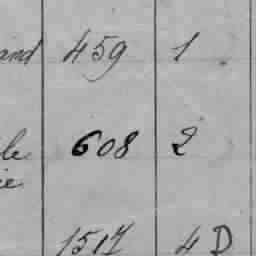 and 459 1
le 608 2
ie
1517 4 D